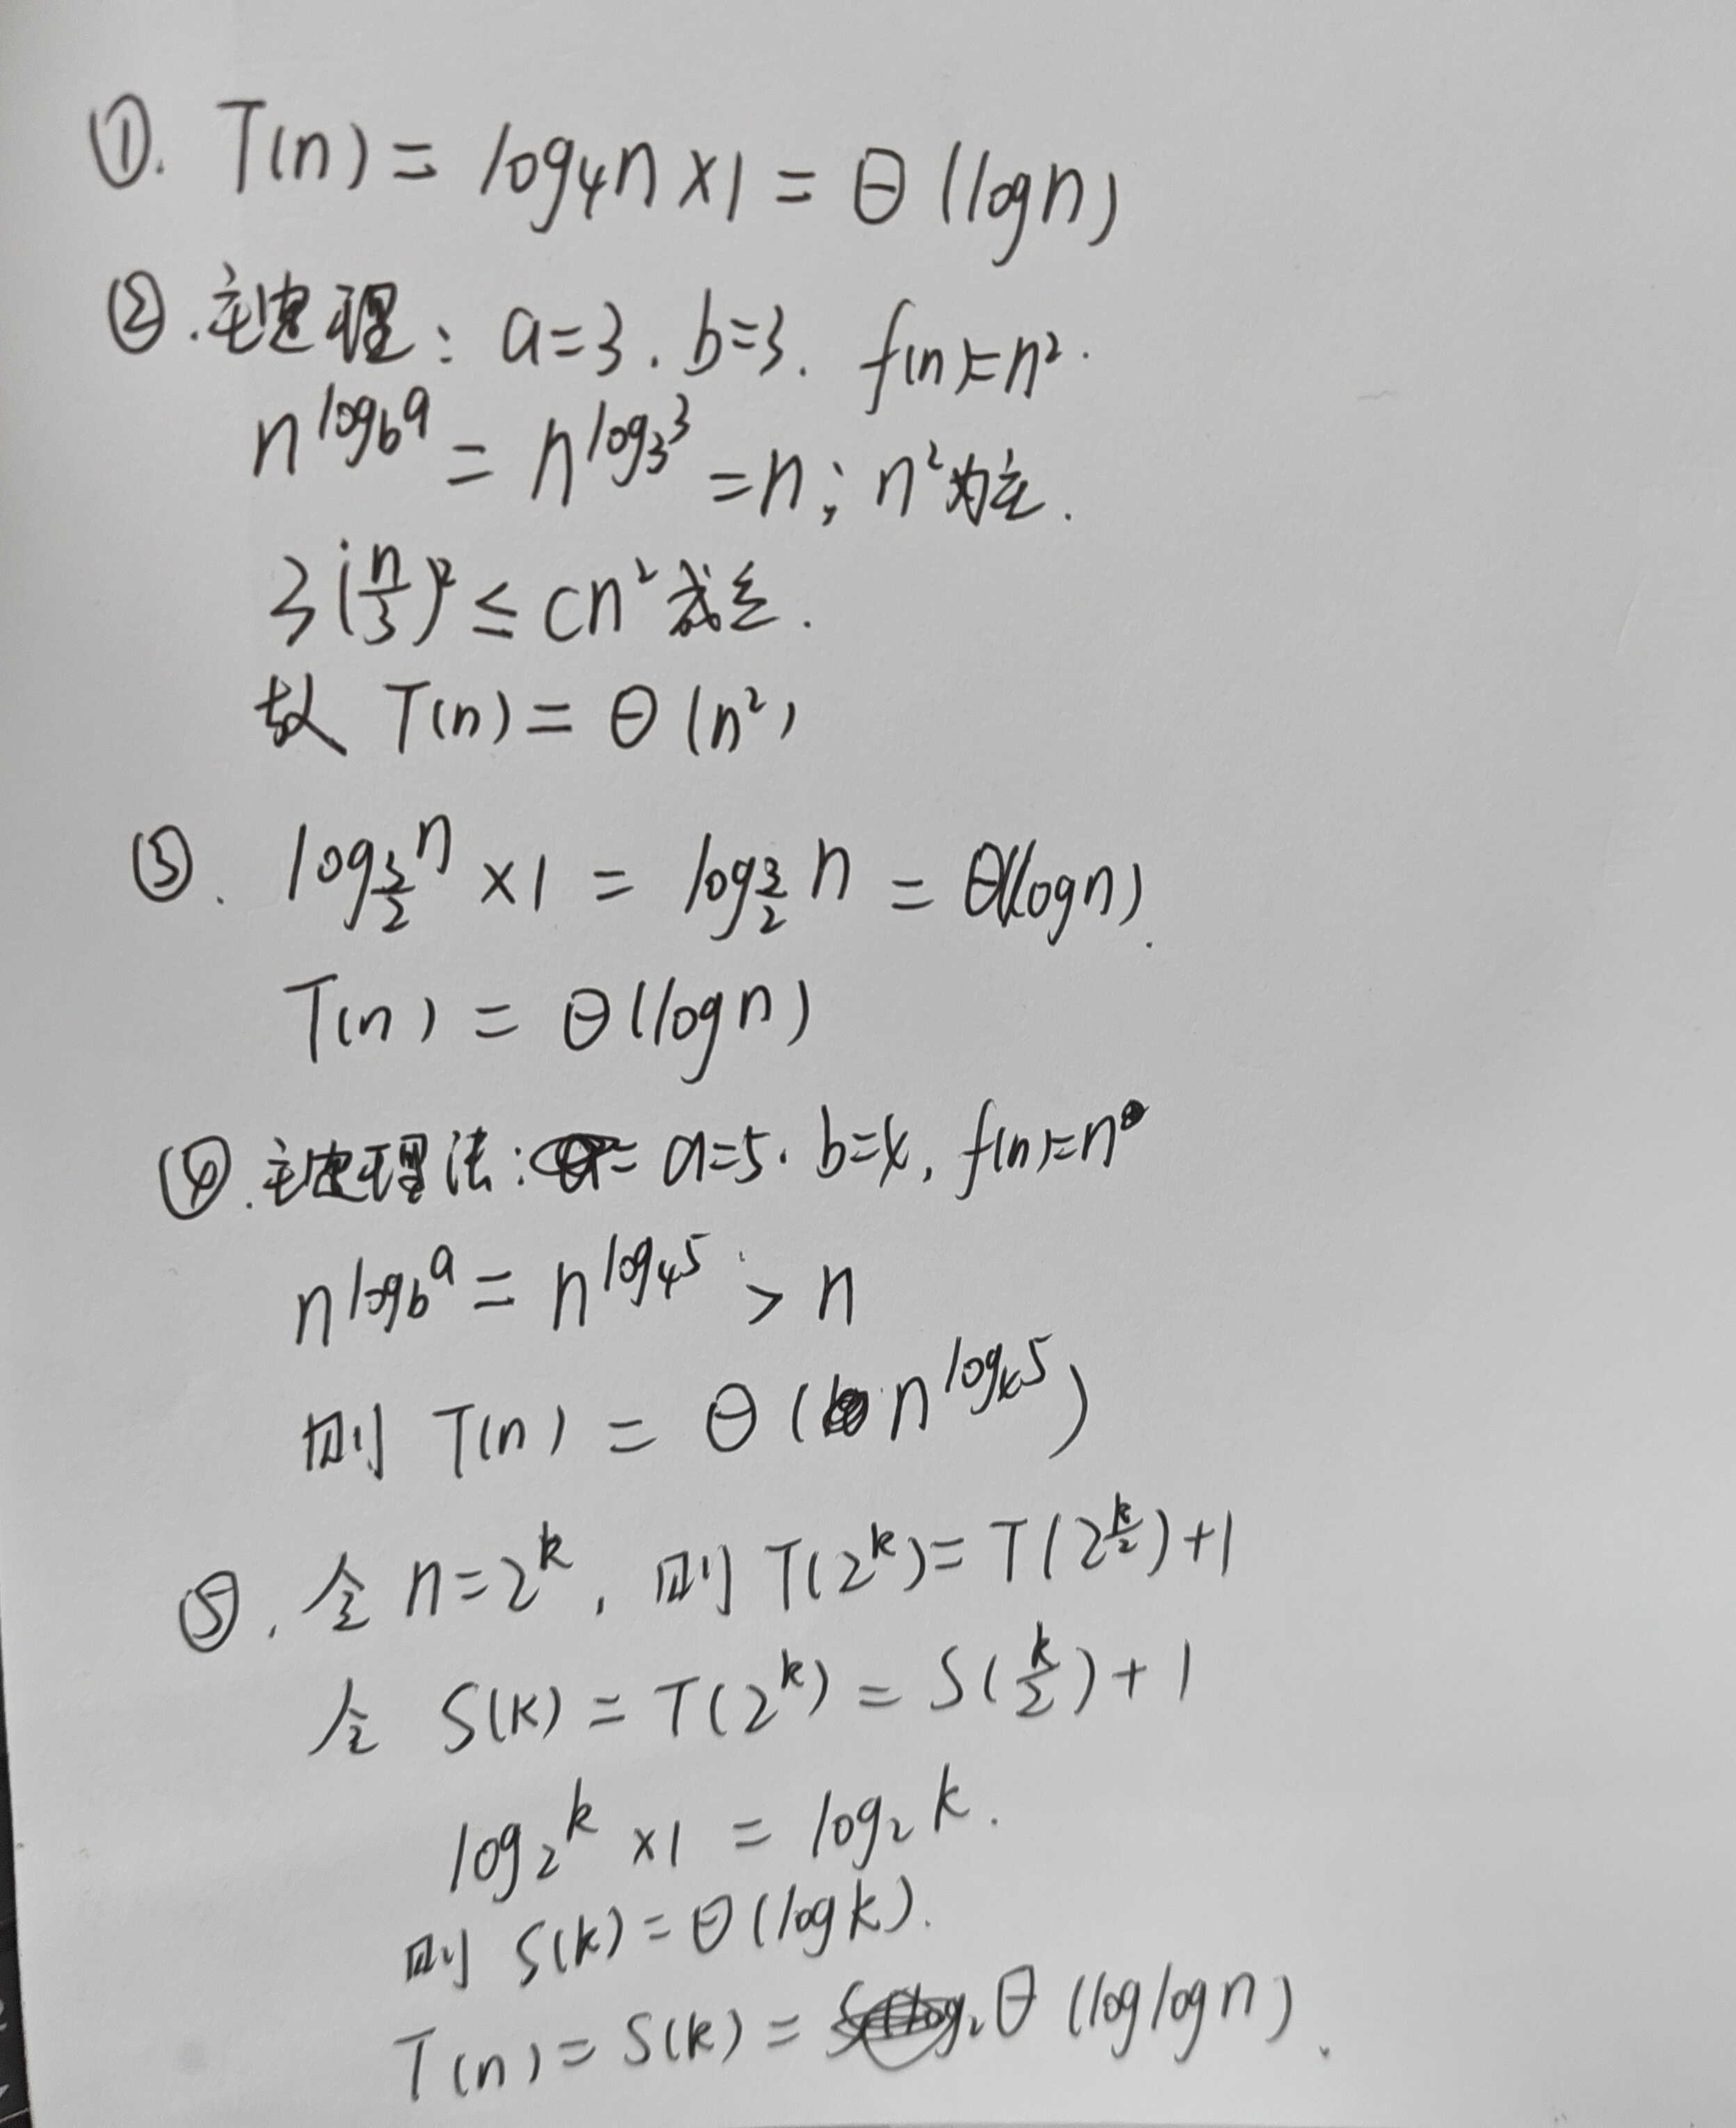 ①. T(n) = log₄n × 1 = Θ (log n)
②. 主定理: a=3. b=3. f(n)=n².
n^{log_b a} = n^{log₃3} = n; n²为主.
3(n/3)² ≤ cn² 成立.
故 T(n) = Θ (n²)
③. log_{3/2} n × 1 = log_{3/2} n = Θ(log n).
T(n) = Θ(log n)
④. 主定理法: a=5. b=4, f(n)=n
n^{log_b a} = n^{log₄5} > n
则 T(n) = Θ (n^{log₄5})
⑤. 令 n=2^k, 则 T(2^k) = T(2^{k/2})+1
令 S(k) = T(2^k) = S(k/2)+1
log₂k × 1 = log₂k.
则 S(k) = Θ(log k).
T(n) = S(k) = Θ (log log n).